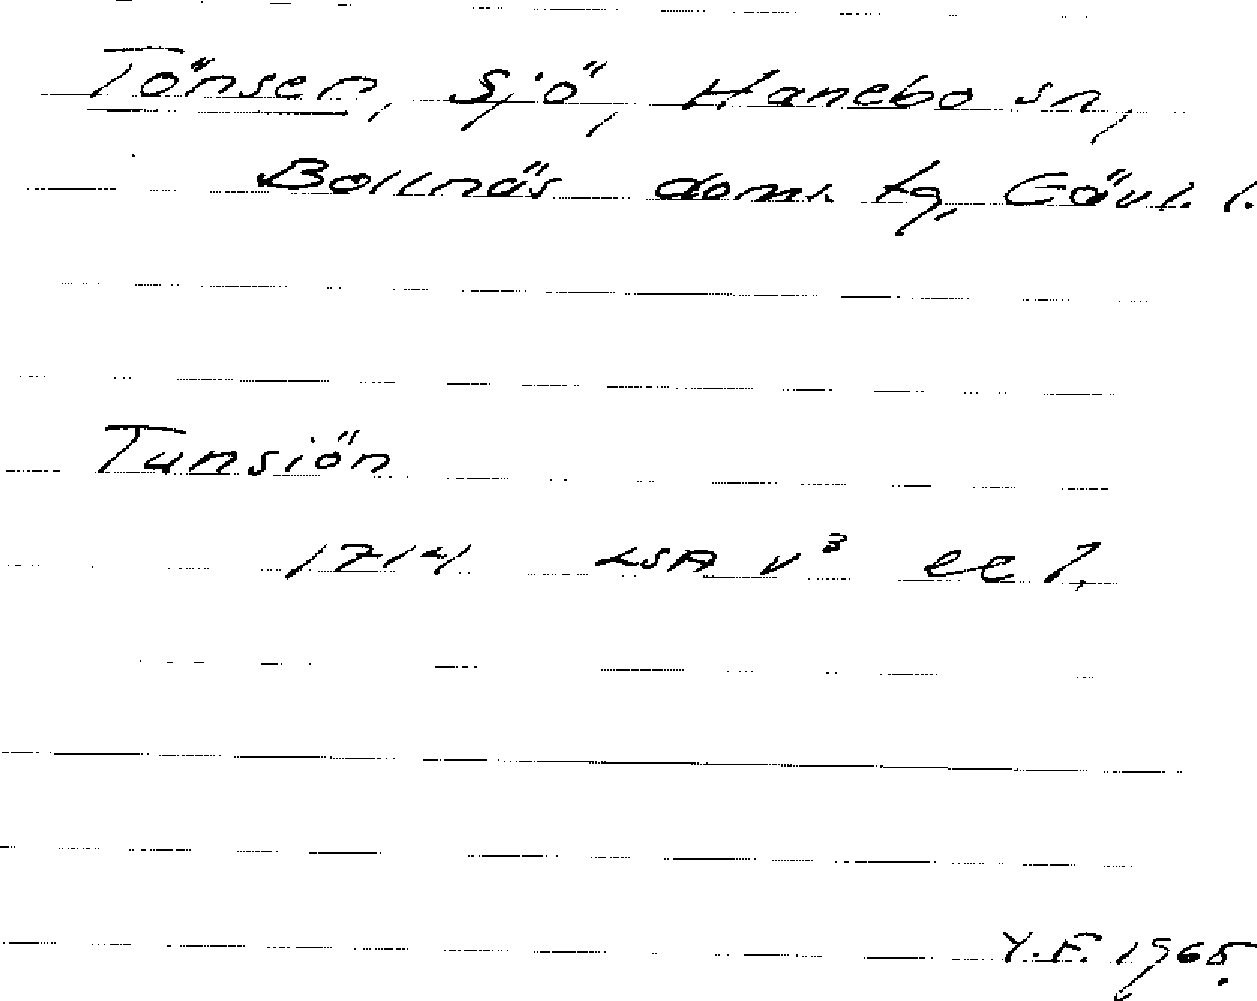 Tönsen, sjö, Hanebo sn,
Bollnäs doms. tg, Gävl. l.
Tunsiön
1714 LSA v³ ee 7.
Y.F. 1965.